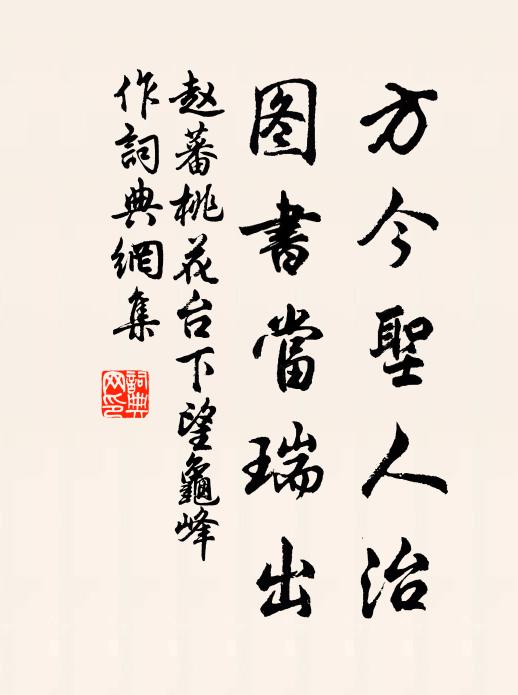 方今聖人治
图書當瑞出
赵蕃桃花台下望龜峰
作詞典網集
詞典网印